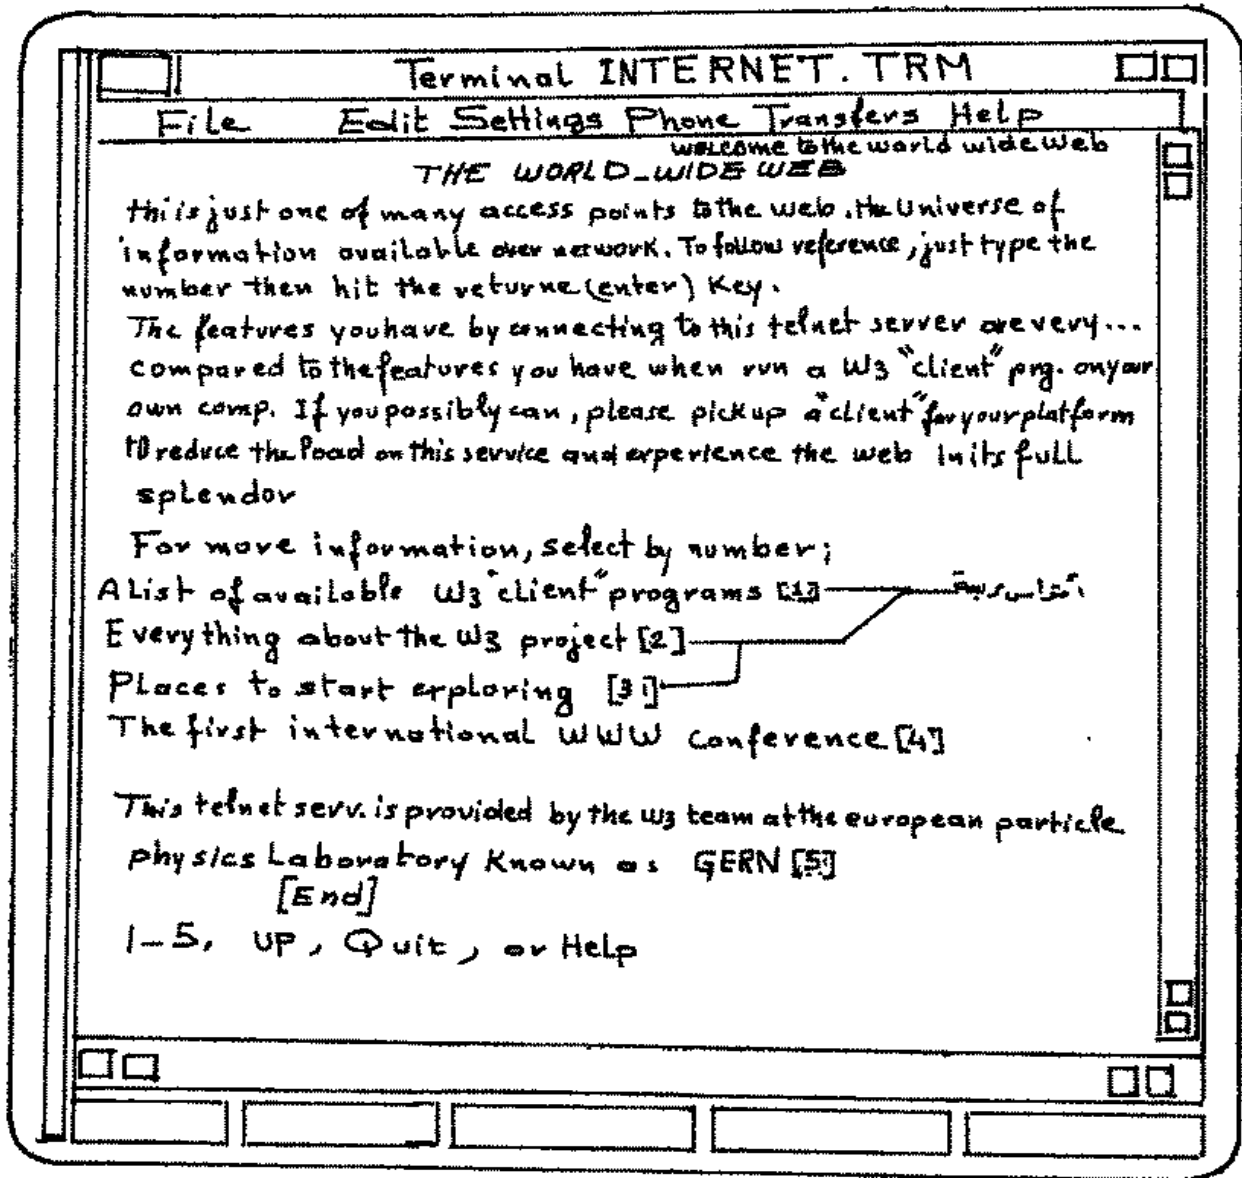 Terminal INTERNET.TRM
File Edit Settings Phone Transfers Help
welcome to the world wide web
THE WORLD_WIDE WEB
this is just one of many access points to the web. the Universe of
information available over network. To follow reference, just type the
number then hit the returne (enter) Key.
The features you have by connecting to this telnet server are very...
compared to the features you have when run a W3 "client" prg. on your
own comp. If you possibly can, please pick up a "client" for your platform
to reduce the load on this service and experience the web in its full
splendor
For more information, select by number;
A List of available W3 "client" programs [1]
Everything about the W3 project [2]
Places to start exploring [3]
The first international WWW Conference [4]
This telnet serv. is provided by the W3 team at the european particle
physics Laboratory Known as GERN [5]
[End]
1_5, UP, Quit, or Help